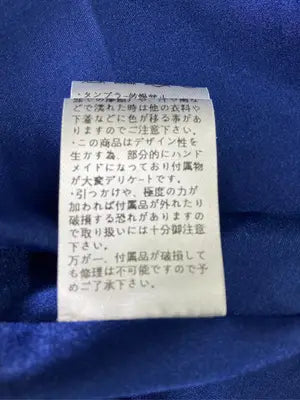 ・タンブラー乾燥禁止
での摩擦や、汗や雨な
どで濡れた時は他の衣料や
下着などに色が移る事があ
りますのでご注意下さい。
・この商品はデザイン性を
生かす為、部分的にハンド
メイドになっており付属物
が大変デリケートです。
・引っかけや、極度の力が
加われば付属品が外れたり
破損する恐れがありますの
で取り扱いには十分御注意
下さい。
万が一、付属品が破損して
も修理は不可能ですので予
めご了承下さい。